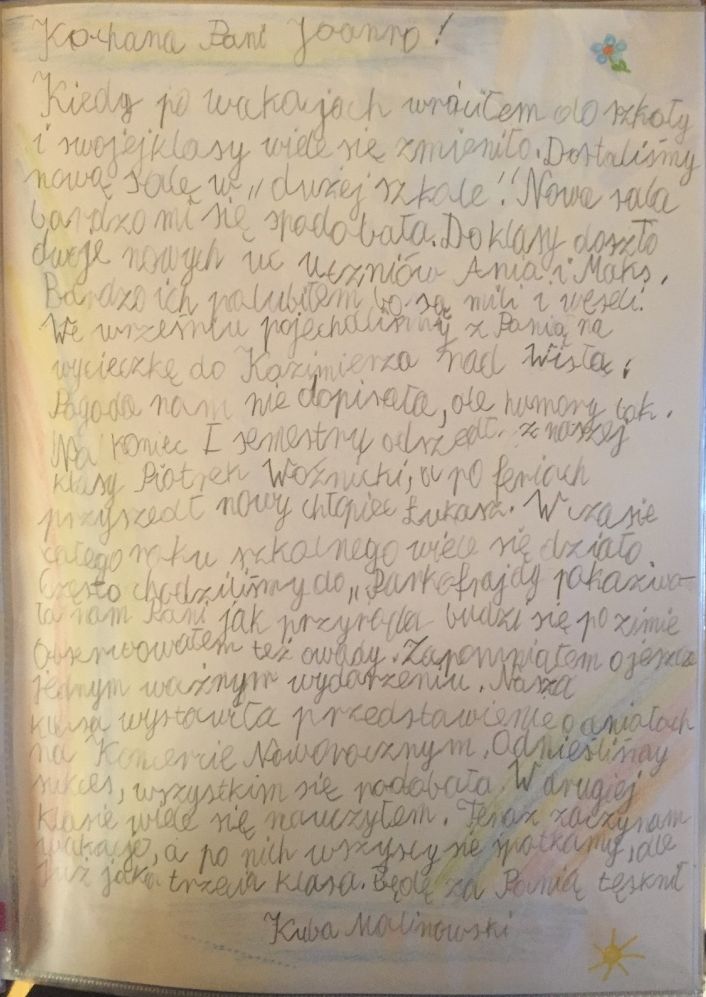 Kochana Pani Joanno!
Kiedy po wakajach wróciłem do szkoły
i swojej klasy wiele się zmieniło. Dostaliśmy
nową salę w "dużej szkole". Nowa sala
bardzo mi się spodobała. Do klasy doszło
dwoje nowych uczniów Ania i Maks.
Bardzo ich polubiłem bo są mili i weseli.
We wrześniu pojechaliśmy z Panią na
wycieczkę do Kazimierza nad Wisłą.
Pogoda nam nie dopisała, ale humory tak.
Na koniec I semestry odszedł z naszej
klasy Piotrek Woźnicki, a po feriach
przyszedł nowy chłopiec Łukasz. W czasie
całego roku szkolnego wiele się działo
Często chodziliśmy do „Parku frajdy pokaziwa-
ła nam Pani jak przyroda budzi się po zimie
Obserwowałem też owady. Zapomniałem o jeszcze
jednym ważnym wydarzeniu. Nasza
klasa wystawiła przedstawienie o aniołach
na Koncercie Noworocznym. Odnieśliśmy
sukces, wszystkim się podobało. W drugiej
klasie wiele się nauczyłem. Teraz zaczynam
wakacje, a po nich wszyscy się spotkamy, ale
już jako trzecia klasa. Będę za Panią tęsknił
Kuba Malinowski